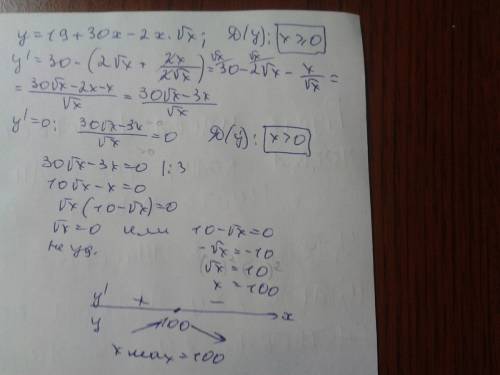 y = 19 + 30x - 2x·√x; D(y): x ≥ 0
y' = 30 - (2√x + 2x/(2√x)) = 30 - 2√x - x/√x =
= (30√x - 2x - x)/√x = (30√x - 3x)/√x
y' = 0: (30√x - 3x)/√x = 0 D(y'): x > 0
30√x - 3x = 0 |:3
10√x - x = 0
√x (10 - √x) = 0
√x = 0 или 10 - √x = 0
не уд. -√x = -10
(√x)² = (10)²
x = 100
y' + -
y 100 x
x max = 100